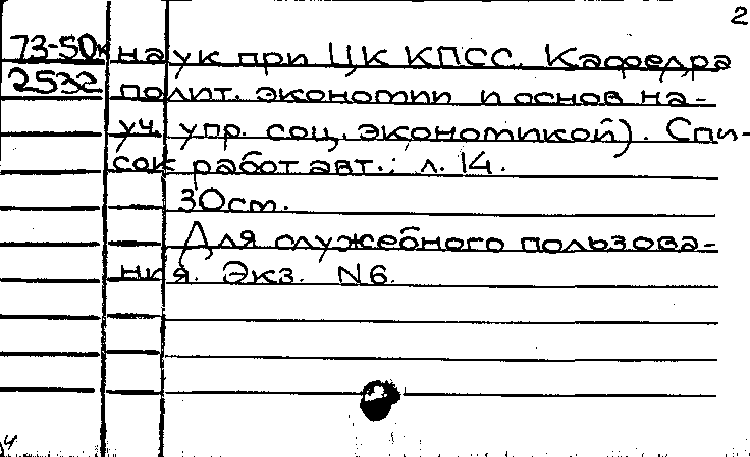 2
73-50к наук при ЦК КПСС. Кафедра
2532 полит. экономии и основ на-
уч. упр. соц. экономикой). Спи-
сок работ авт.: л. 14.
30 см.
Для служебного пользова-
ния. Экз. N6.